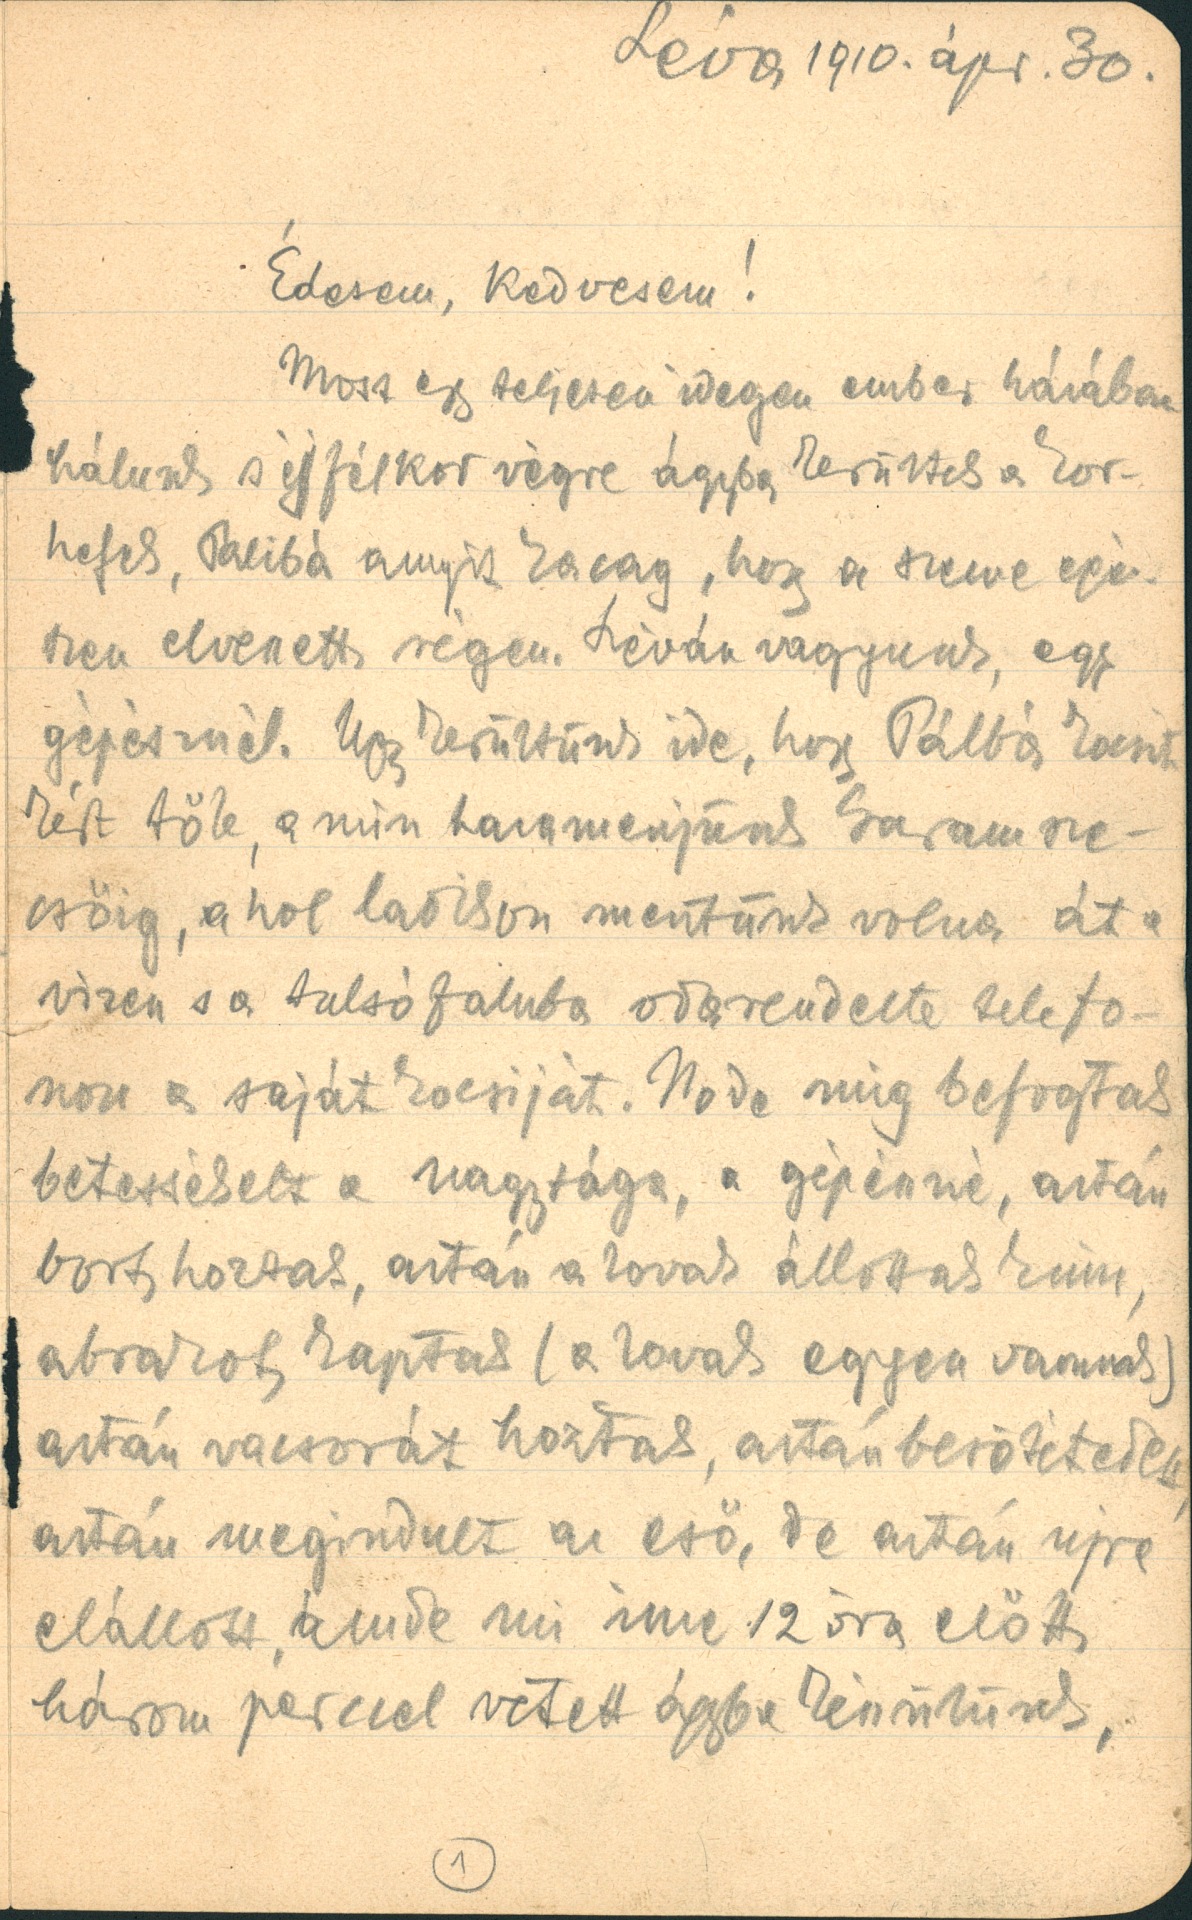 Léva 1910. ápr. 30.
Édesem, Kedvesem!
Most egy teljesen idegen ember házában
hálunk s éjfélkor végre ágyba kerültek a kor-
helyek, Palibá annyit kacag, hogy a szeme egé-
szen elveszett régen. Léván vagyunk, egy
gépésznél. Úgy kerültünk ide, hogy Pálbá kocsit
kért tőle, a min hazamenjünk Garamsze-
csőig, a hol ladikon mentünk volna át a
vizen s a tulsó faluba oda rendelte telefo-
non a saját kocsiját. No de mig befogtak
betessékelt a nagysága, a gépészné, aztán
bort hoztak, aztán a lovak állottak kinn,
abrakot kaptak (a lovak egyen vannak)
aztán vacsorát hoztak, aztán besötétedett,
aztán megindult az eső, de aztán ujra
elállott, ámde mi ime 12 óra előtt
három perccel vetett ágyba kerültünk,
1